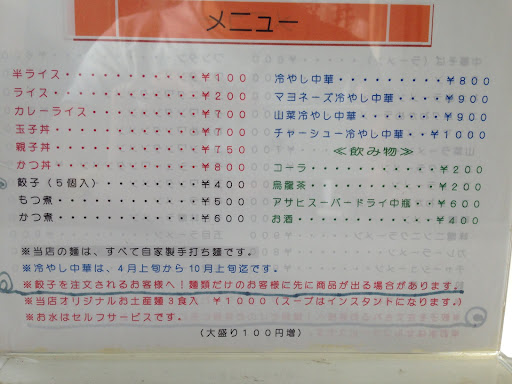 メニュー
半ライス・・・・・・・・・・¥100
ライス・・・・・・・・・・・¥200
カレーライス・・・・・・・・¥700
玉子丼・・・・・・・・・・・¥700
親子丼・・・・・・・・・・・¥750
かつ丼・・・・・・・・・・・¥800
餃子（5個入）・・・・・・・・¥400
もつ煮・・・・・・・・・・・¥500
かつ煮・・・・・・・・・・・¥600
冷やし中華・・・・・・・・・¥800
マヨネーズ冷やし中華・・・・¥900
山菜冷やし中華・・・・・・・¥900
チャーシュー冷やし中華・・¥1000
≪飲み物≫
コーラ・・・・・・・・・・・¥200
烏龍茶・・・・・・・・・・・¥200
アサヒスーパードライ中瓶・・¥600
お酒・・・・・・・・・・・・¥400
※当店の麺は、すべて自家製手打ち麺です。
※冷やし中華は、4月上旬から10月上旬迄です。
※餃子を注文されるお客様へ！麺類だけのお客様に先に商品が出る場合があります。
※当店オリジナルお土産麺3食入 ¥1000（スープはインスタントになります。）
※お水はセルフサービスです。
（大盛り100円増）